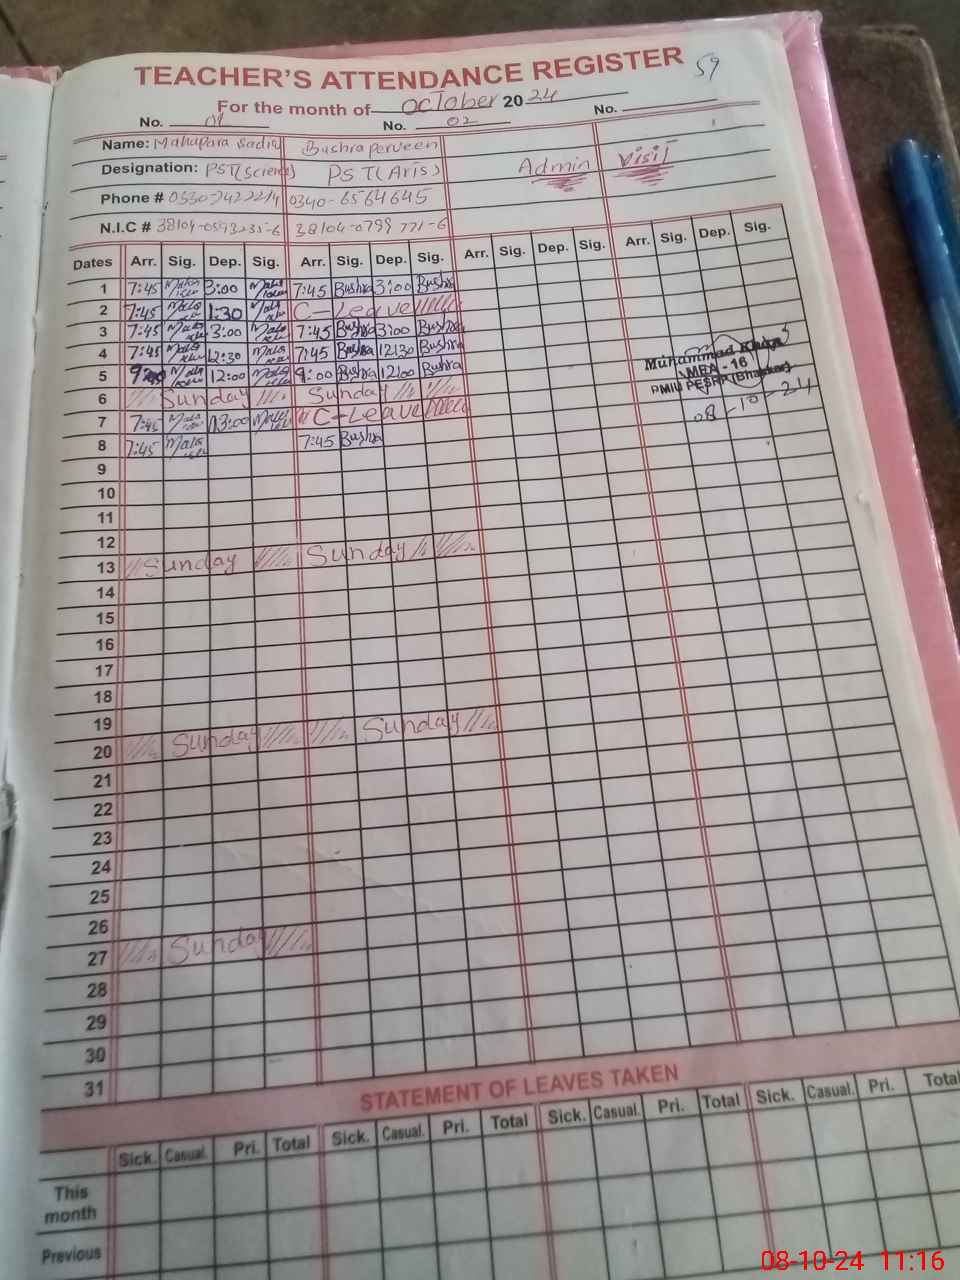 TEACHER'S ATTENDANCE REGISTER 59
For the month of October 20 24
No. 01 No. 02 No.
Name: Mahupara Sadiq Bushra perveen
Designation: PST(science) PST(Aris) Admin Visit
Phone # 0340-6564645
N.I.C # 38104-0593235-6 38104-0799771-6
Dates Arr. Sig. Dep. Sig. Arr. Sig. Dep. Sig. Arr. Sig. Dep. Sig. Arr. Sig. Dep. Sig.
1 7:45 3:00 7:45 Bushra 3:00 Bushra
2 7:45 1:30 C-Leave
3 7:45 3:00 7:45 Bushra 3:00 Bushra
4 7:45 12:30 7:45 Bushra 12:30 Bushra
5 12:00 9:00 Bushra 12:00 Bushra
6 Sunday Sunday
7 7:45 3:00 C-Leave
8 7:45 7:45 Bushra
Muhammad Khan
MEA - 16
PMIU PESRP (Bhakkar)
08-10-24
9
10
11
12
13 Sunday Sunday
14
15
16
17
18
19
20 Sunday Sunday
21
22
23
24
25
26
27 Sunday
28
29
30
31
STATEMENT OF LEAVES TAKEN
Sick. Casual. Pri. Total Sick. Casual. Pri. Total Sick. Casual. Pri. Total Sick. Casual. Pri. Total
This
month
Previous
08-10-24 11:16